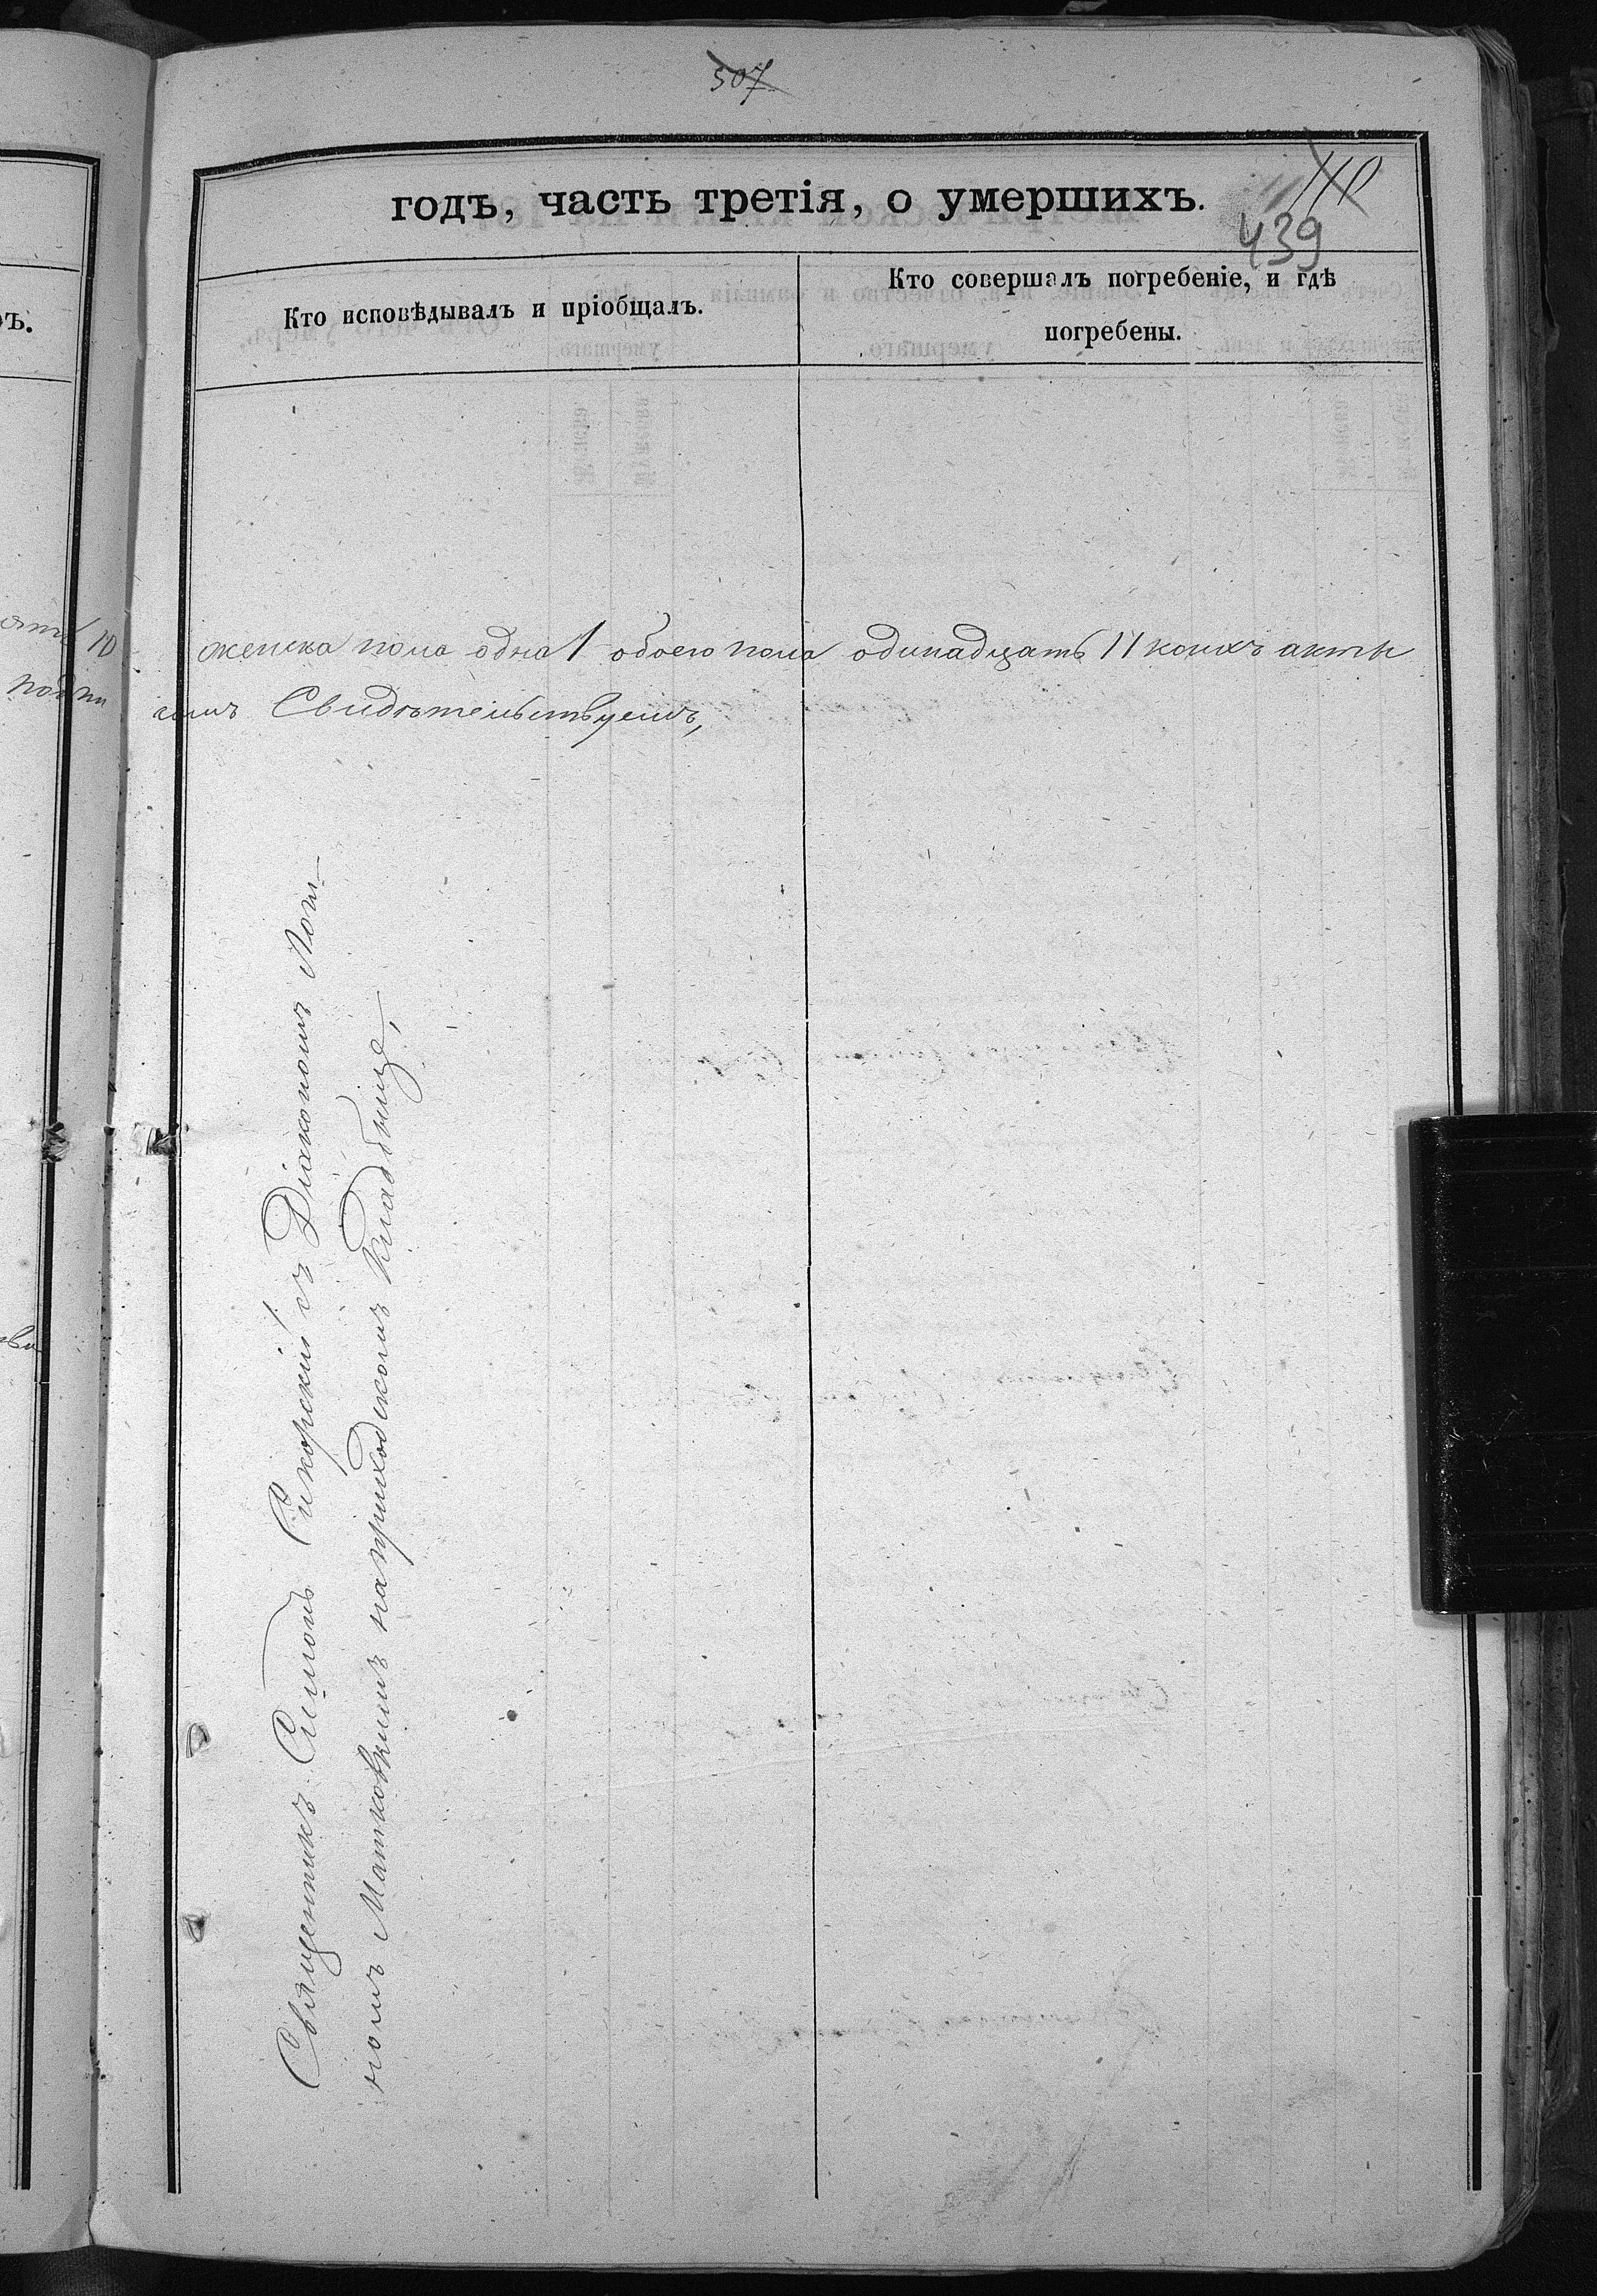 507
годъ, часть третія, о умершихъ.
110
439
Кто исповѣдывалъ и пріобщалъ.
Кто совершалъ погребеніе, и гдѣ
погребены.
ъ.
10
женска пола одна 1 обоего пола одинадцать 11 коихъ акты
симъ Свидѣтельствуемъ,
Священникъ Симонъ Сикорскій съ Діакономъ
номъ Матковкимъ на приходскомъ Кладбище,